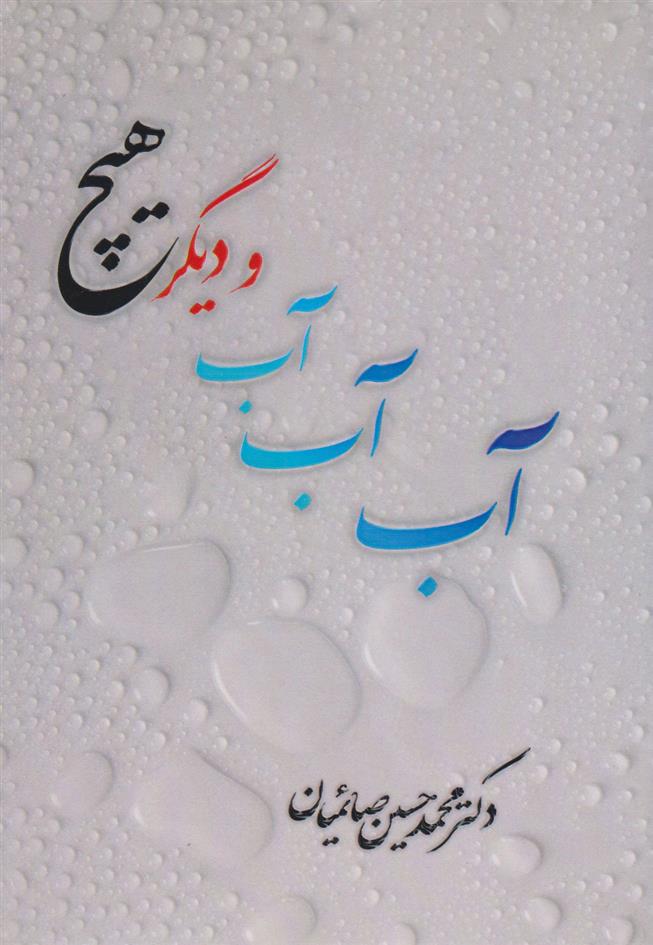 آب
آب
آب
و دیگر هیچ
دکتر محمد حسین صائمیان